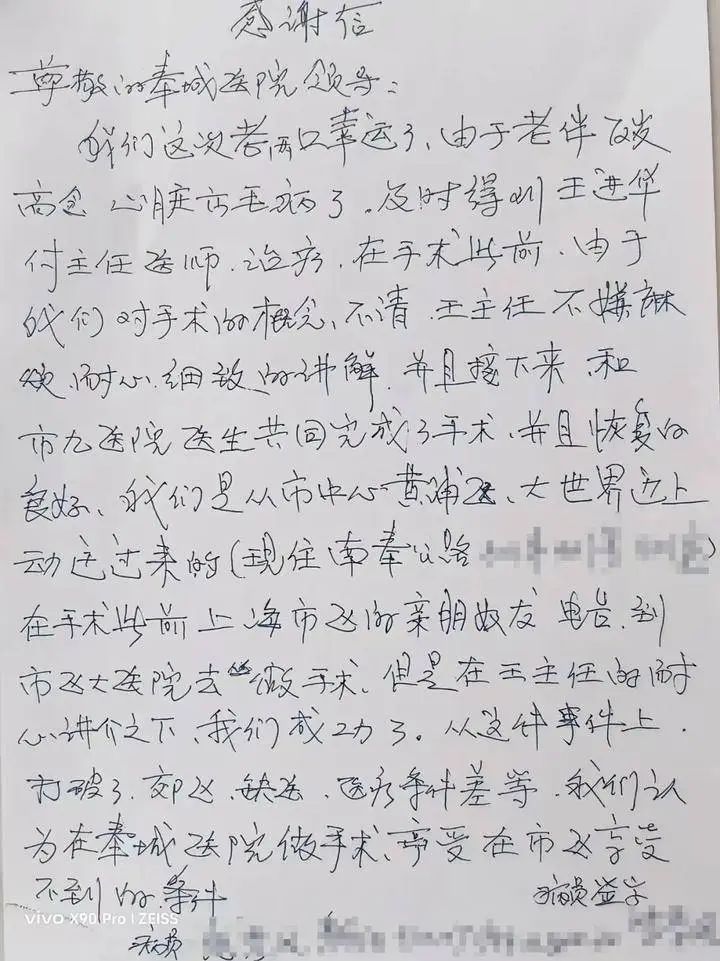 感谢信
尊敬的奉城医院领导：
我们这次老两口幸运了、由于老伴百岁
高念 心脏方毛病了。及时得到王进华
付主任医师、治疗、在手术此前、由于
我们对手术的概念、不清、王主任不嫌麻
烦、耐心、细致的讲解、并且接下来、和
市九医院医生共同完成了手术、并且恢复的
良好、我们是从市中心黄浦区、大世界边上
动迁过来的（现住南奉公路 ）
在手术此前上海市区的亲朋好友 电告、到
市区大医院去做手术、但是在王主任的耐
心讲介之下、我们成功了。从这件事件上、
打破了、郊区、缺医、医疗条件差等、我们认
为在奉城医院做手术、享受在市区享受
不到的、条件
病员签字
vivo X90 Pro | ZEISS
病员